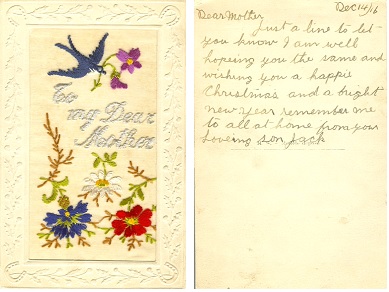 To
my Dear
Mother
Dec 14/16
Dear Mother
Just a line to let
you know I am well
hopeing you the same and
wishing you a happie
Christmas and a bright
new year remember me
to all at home from your
loveing son Jack